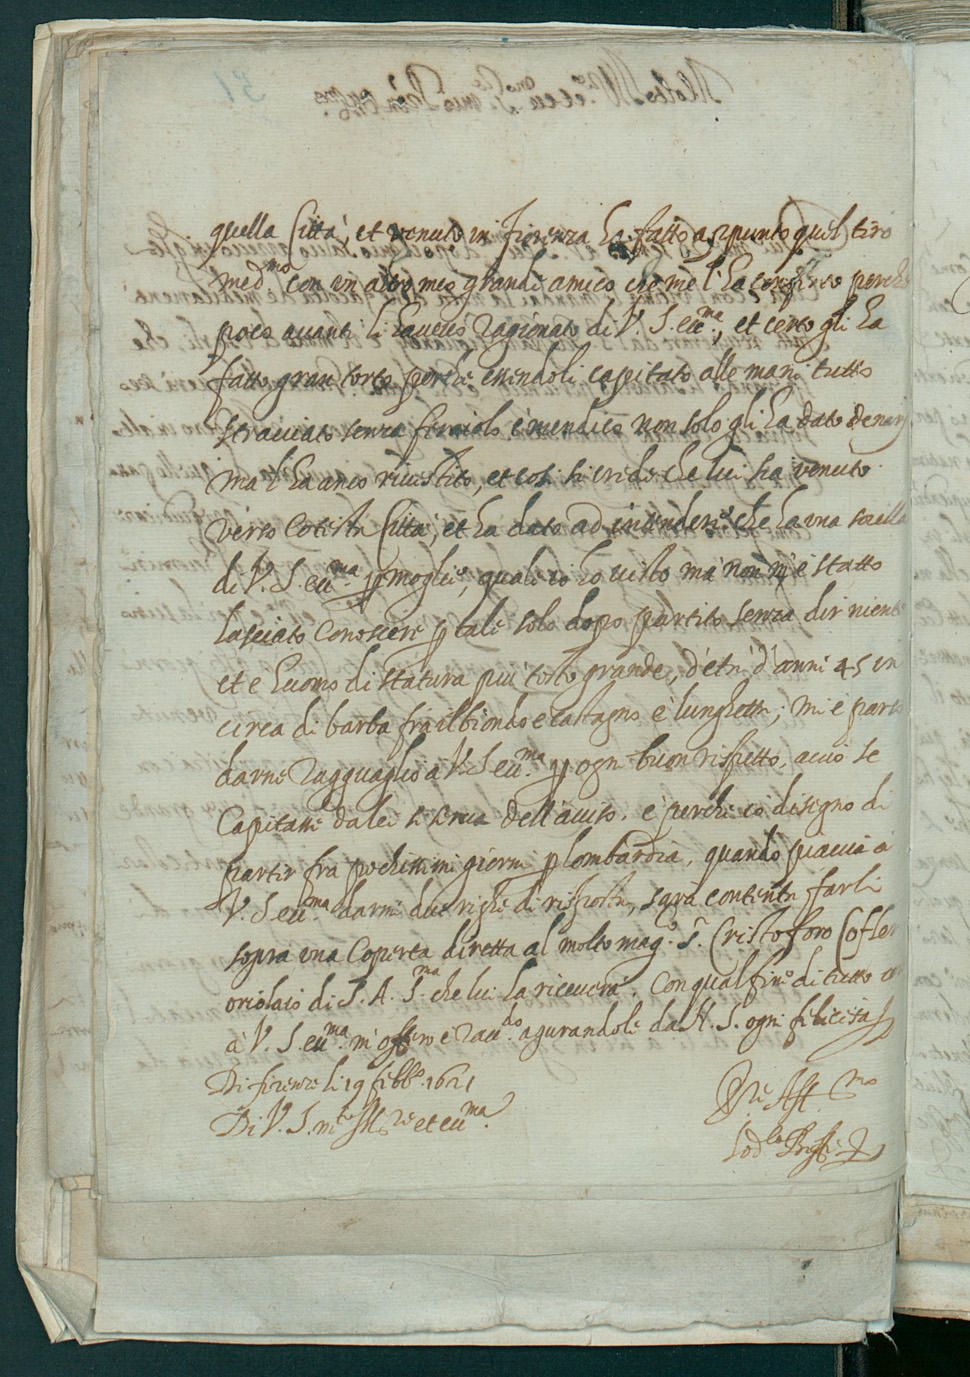 quella Città, et venuto in Fiorenza ha fatto apunto quel tiro
med.mo con un altro mio grande amico che me l'ha conferito perche
poco avanti li havevo ragionato di V. S. ecc.ma, et certo gli ha
fatto gran torto perche essendoli capitato alle mani tutto
stracciato senza feraiolo e mendico non solo gli ha dato denari
ma l'ha anco rivestito, et così si crede che lui sia venuto
verso cotesta Città, et ha dato ad intendere che ha una sorella
di V. S. ecc.ma p moglie, quale io ho visto ma non m'è stato
lasciato conoscere p tale solo dopo partito senza dir niente
et è huomo di statura più tosto grande, d'età d'anni 45 in
circa di barba fra il biondo e castagno e lunghetta; mi è parso
darne ragguaglio à V. S. ecc.ma p ogni buon rispetto, acciò se
Capitasse da lei si serva dell'aviso. e perche io disegno di
partir fra pochissimi giorni p lombardia, quando piaccia à
V. S. ecc.ma darmi due righe di risposta, sarà contenta farli
sopra una Coperta diretta al molto mag.co S.r Cristoforo
oriolaio di S. A. S.ma che lui la riceverà. Con qual fine di tutto
à V. S. ecc.ma m'offero e racc.do agurandole da N. S. ogni felicità
Di fiorenza li 19 febb.o 1621
Di V. S. m.to Ill.re et ecc.ma
Ser.re Aff.mo